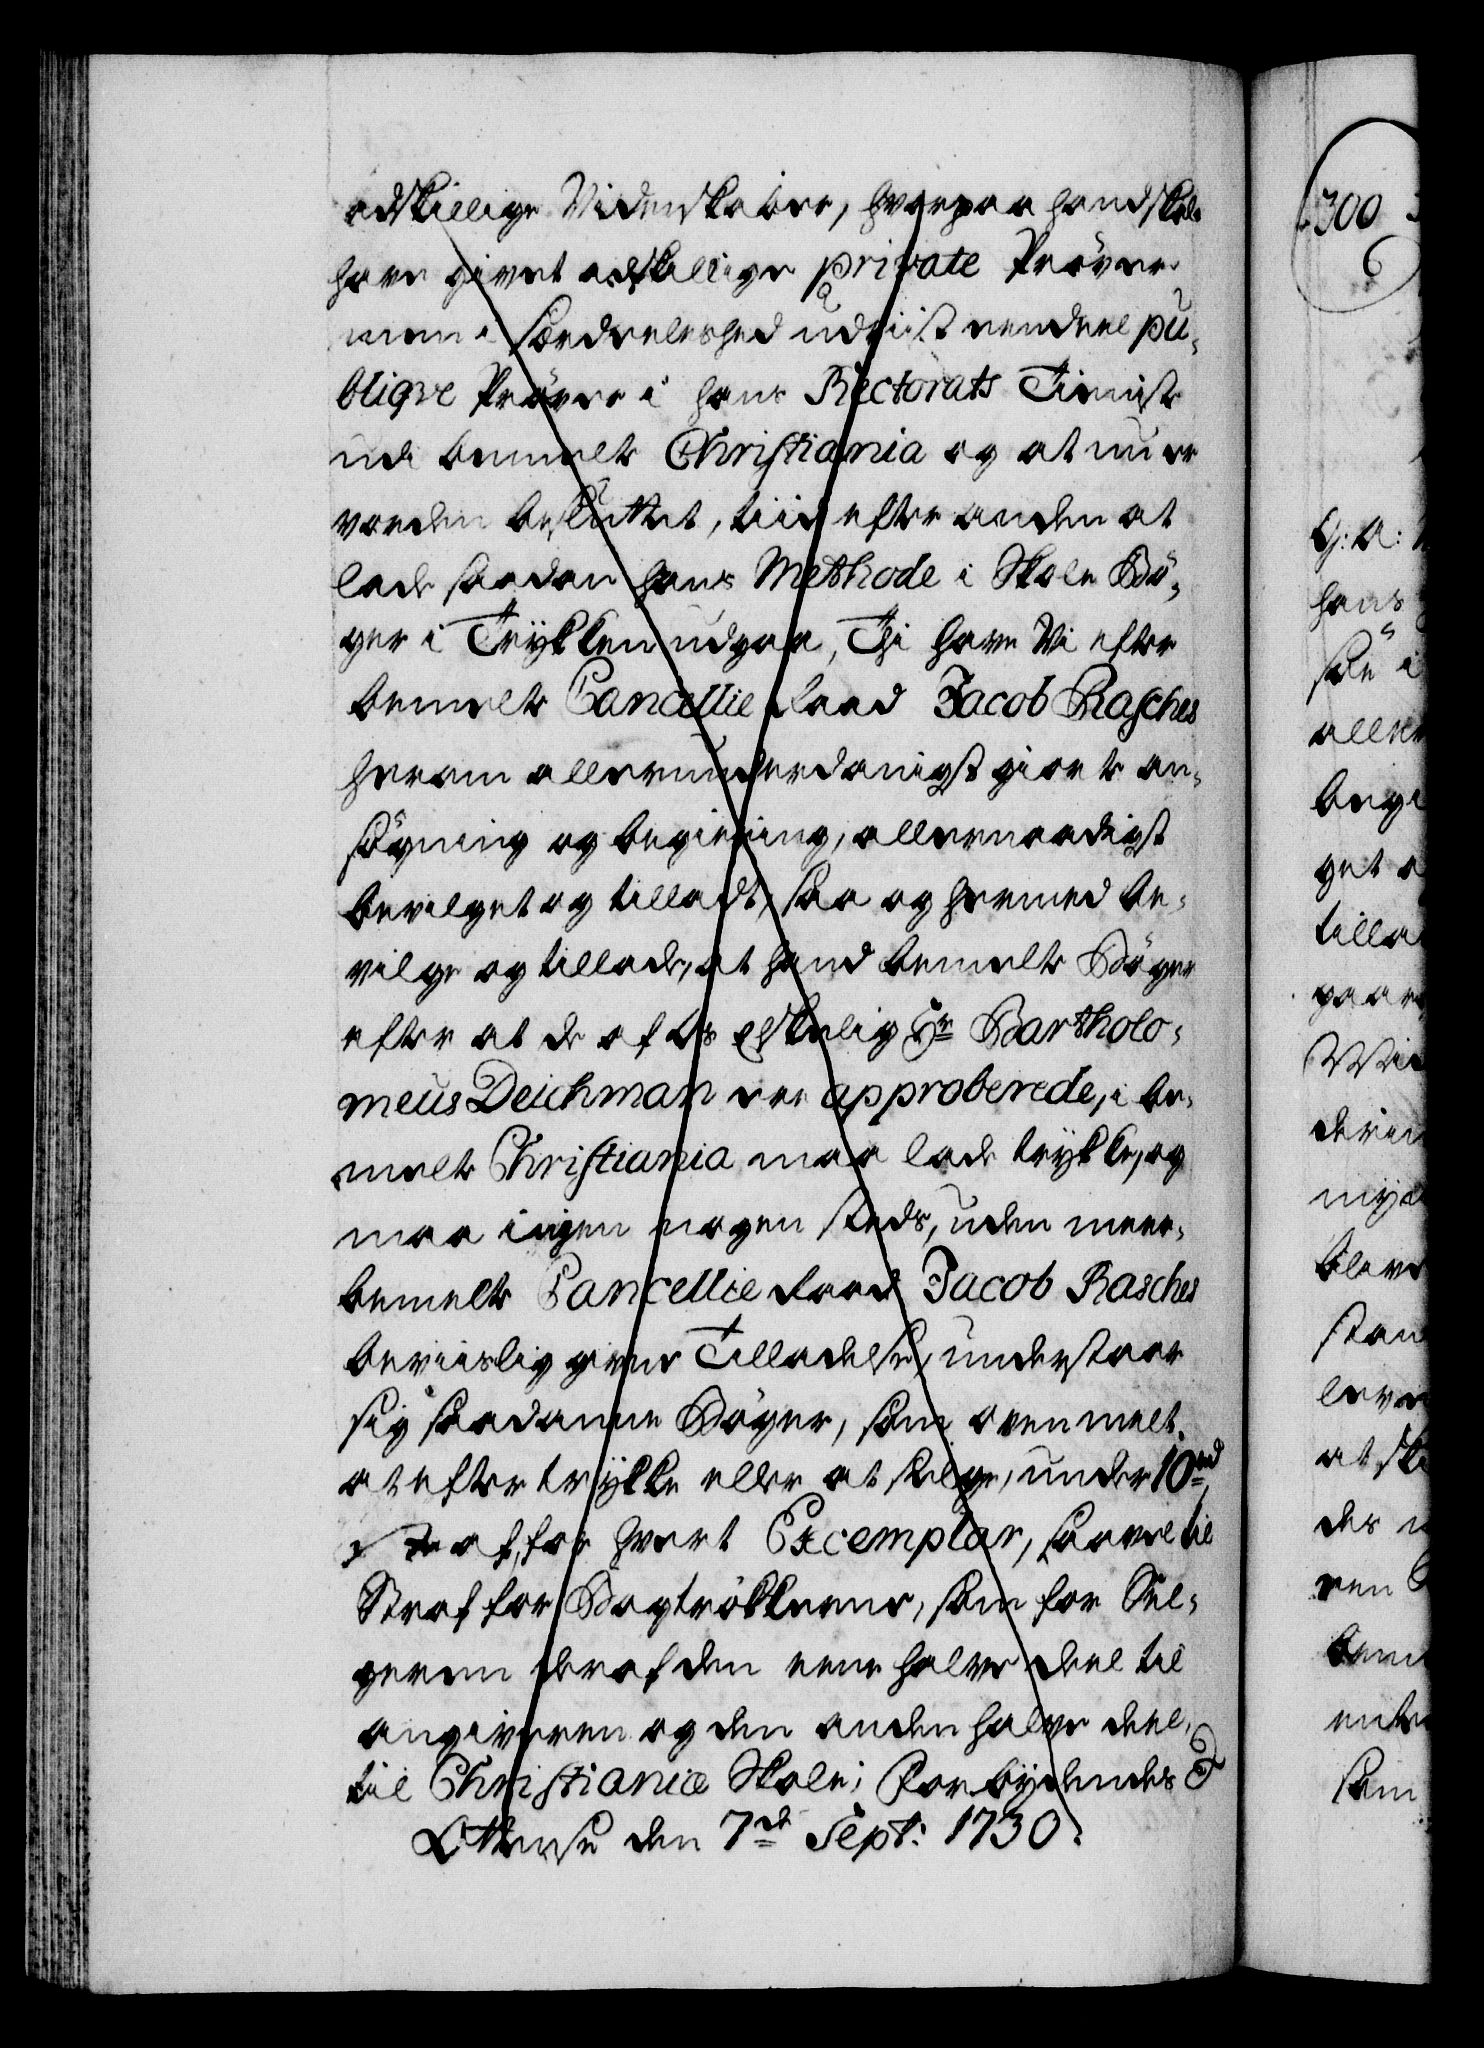 adskillige Videnskaber, hvorpaa hand skal
have givet adskillige private Prøver
men i særdeleshed udviist eendeel pu-
bliqve Prøver i hans Rectorats Tieniste
udi bemelte Christiania og at nu er
vorden besluttet, tiid efter anden at
lade saadan hans Methode i Skole Bø-
ger i Trykken udgaa, Thi have Vi efter
bemelte Cancellie Raad Jacob Rasches
herom allerunderdanigst giorte an-
søgning og begiering, allernaadigst
bevilget og tilladt, saa og hermed be-
vilge og tillade, at hand bemelte Bøger
efter at de af Os Elskelig Hr Bartholo-
meus Deichman ere approberede, i be-
melte Christiania maa lade trykke, og
maa ingen nogen steds, uden meer-
bemelte Cancellie Raad Jacob Rasches
beviislig givne Tilladelse, understaae
sig saadanne Bøger, som ovenmelt,
at eftertrykke eller at selge, under 10
for hvert Excemplar, saavel til
Straf for Bagtrøkkerne, som for Sel-
geren deraf den eene halve deel til
angiveren og den anden halve deel
til Christianiæ Skole; Forbydendes &
Ottense den 7de Sept: 1730.
300